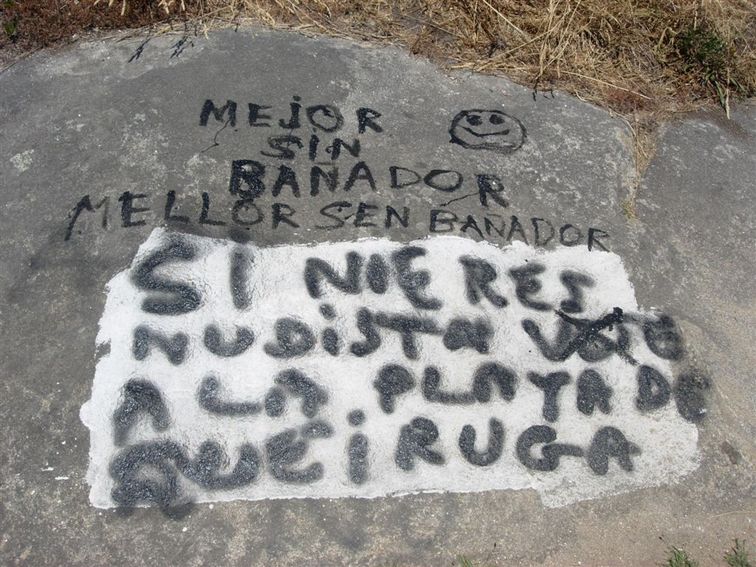 MEJOR
SiN
BAÑADOR
MELLOR SEN BAÑADOR
Si NiERES
NUDiSTA
A LA PLAYA DE
QUEiRUGA